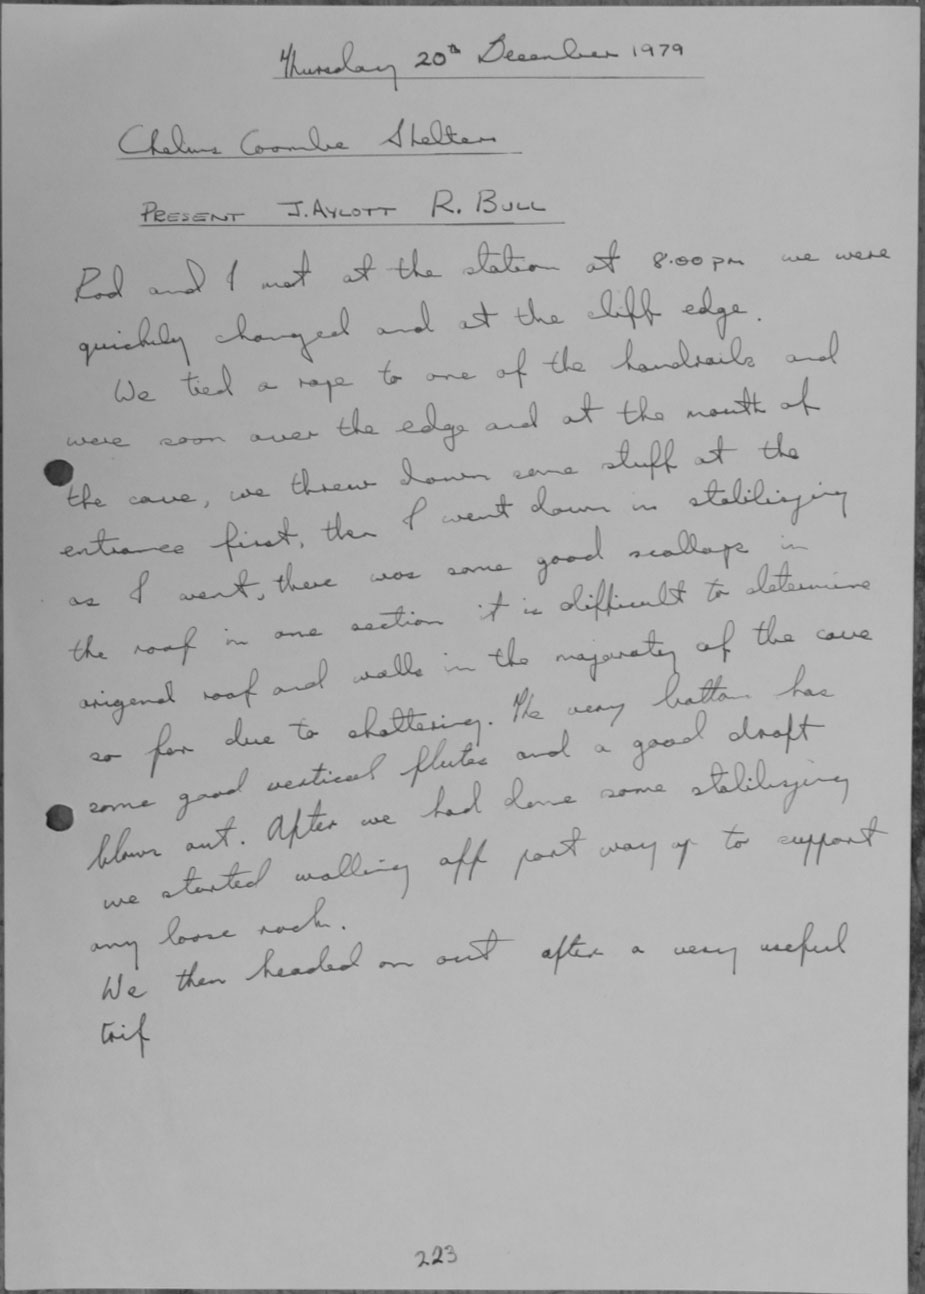 Thursday 20th December 1979
Chelms Coombe Shelter
PRESENT J. AYLOTT R. BULL
Rod and I met at the station at 8.00 pm we were
quickly changed and at the cliff edge.
We tied a rope to one of the handrails and
were soon over the edge and at the mouth of
the cave, we threw down some stuff at the
entrance first, then I went down in stabilizying
as I went, there was some good scallops in
the roof in one section it is difficult to determine
origenal roof and walls in the majoraty of the cave
so far due to shattering. The very bottom has
some good vertical flutes and a good draft
blows out. After we had done some stabilizying
we started walling off part way up to support
any loose rock.
We then headed on out after a very useful
trip
223